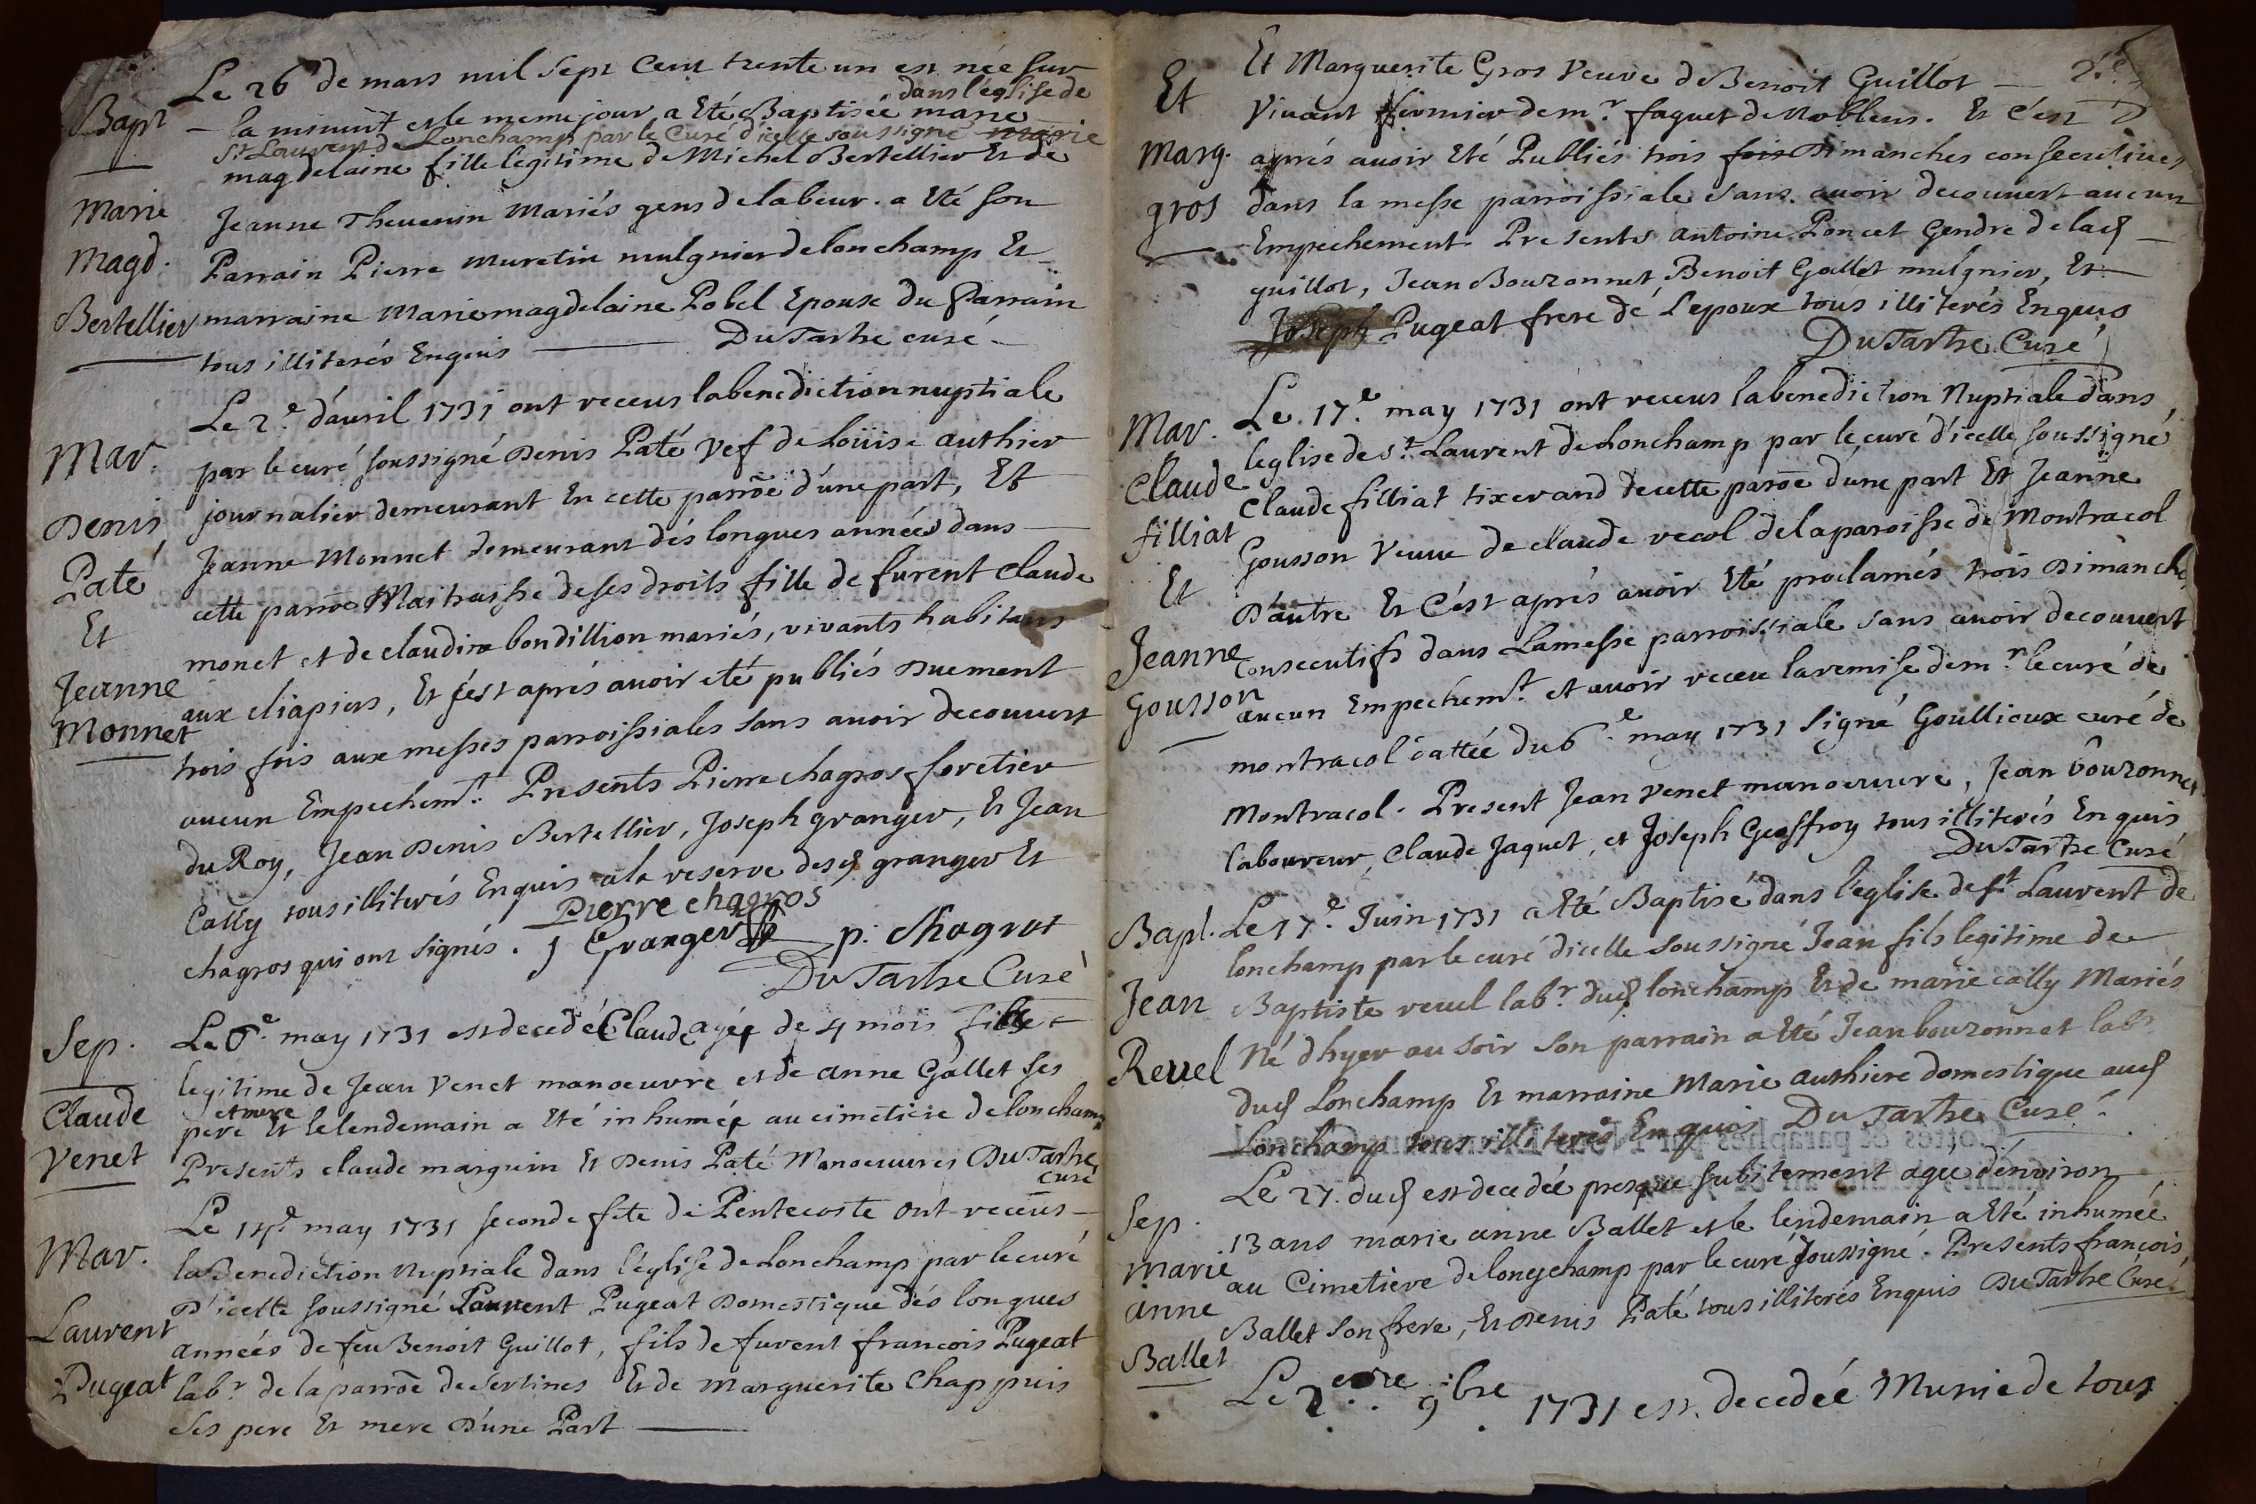 Le 26e de mars mil sept cent trente un est née sur
Bapt la minuit et le meme jour a Eté Baptisée marie dans l'église de
St Laurent de Lonchamp par le Curé d'icelle soussigné marie
magdelaine fille legitime de Michel Bertellier Et de
Marie Jeanne Thevenin Mariés gens de labeur. a Eté son
Magd. Parrain Pierre Muretin mulgnier de lonchamp Et
Bertellier marraine Marie magdelaine Pobel Epouse du Parrain
tous illiterés Enquis DuTartre curé
Le 2e d'auril 1731 ont receus la benediction nuptiale
Mar. par le curé soussigné Denis Paté Vef de Loüise authier
Denis journalier demeurant En cette parroe d'une part, Et
Paté Jeanne Monnet demeurant dés longues années dans
Et cette parroe Maitraisse de ses droits fille de furent Claude
Jeanne monet et de claudine bondillion mariés, vivants habitans
Monnet aux cliapiers, Et c'est aprés auoir eté publiés Duement
trois fois aux messes parroissiales sans auoir decouuert
aucun Empechemt. Presents Pierre chagros foretier
du Roy, Jean Denis Bertellier, Joseph granger, Et Jean
Cally tous illiterés Enquis a la reserve desd granger Et
chagros qui ont signés. Pierre chagros
J Granger p. Chagrot
DuTartre Curé
Sep. Le 6e. may 1731 est decedé Claude agée de 4 mois fils
legitime de Jean Venet manoeuvre et de anne Gallet ses
Claude pere et mere Et le lendemain a Eté inhumée au cimetiere de lonchamp
Venet Presents claude marguin Et Denis Paté Manoeuures DuTartre
curé
Le 14e may 1731 seconde fete de Pentecoste ont receus
Mar. la Benediction Nuptiale dans l'église de Lonchamp par le curé
D'icelle soussigné Laurent Pugeat Domestique dés longues
Laurent années de feu Benoit Guillot, fils de furent francois Pugeat
Pugeat labr. de la parroe de Sertines Et de Marguerite Chappuis
ses pere Et mere D'une Part
Et Marguerite Gros Veuve de Benoit Guillot
Et Viuant fermier de mr. faguet de Nobleus. Et C'est
Marg. aprés auoir Eté Publiés trois fois Dimanches consecutiues
gros dans la messe parroissiale sans auoir decouuert aucun
Empechement Presents antoine Poncet Gendre de lad
guillot, Jean Bouzonnet, Benoit Gallet mulgnier, Et
Joseph Pugeat frere de L'epoux tous illiterés Enquis
DuTartre Curé
Mar. Le 17.e may 1731 ont receus la benediction Nuptiale dans
l'eglise de St. Laurent de Lonchamp par le curé d'icelle soussigné
Claude Claude filliat tixerand de cette paroe d'une part Et Jeanne
filliat Gousson Veuue de claude recol de la paroisse de Montracol
Et D'autre Et C'est aprés auoir Eté proclamés trois Dimanche
Jeanne consecutifs dans La messe parroissiale sans auoir decouuert
Gousson aucun Empechemt. et auoir receu la remise de mr. le curé de
montracol dattée du 6.e may 1731 signé Goullioux curé de
Montracol. Present Jean Venet manoeuure, Jean bouzonnet
laboureur, Claude Jaquet, et Joseph Geoffroy tous illiterés Enquis
DuTartre Curé
Bapt. Le 17.e Juin 1731 a Eté Baptisé dans l'eglise de St Laurent de
lonchamp par le curé d'icelle soussigné Jean fils legitime de
Jean Baptiste reuel labr. dud lonchamp Et de marie cally Mariés
Reuel Né d'hyer au soir son parrain a Eté Jean bouzonnet labr
dud Lonchamp Et marraine Marie authiere domestique aud
Lonchamp tous illiterés Enquis DuTartre Curé
Le 27. dud est decedée presque subitement agée d'environ
Sep. 13 ans marie anne Ballet et le lendemain a Eté inhumée
Marie au Cimetiere de longchamp par le curé soussigné. Presents françois
anne Ballet son frere, Et Denis Paté tous illiterés Enquis DuTartre Curé
Ballet
Le 2 9bre 1731 est decedée Munie de tous